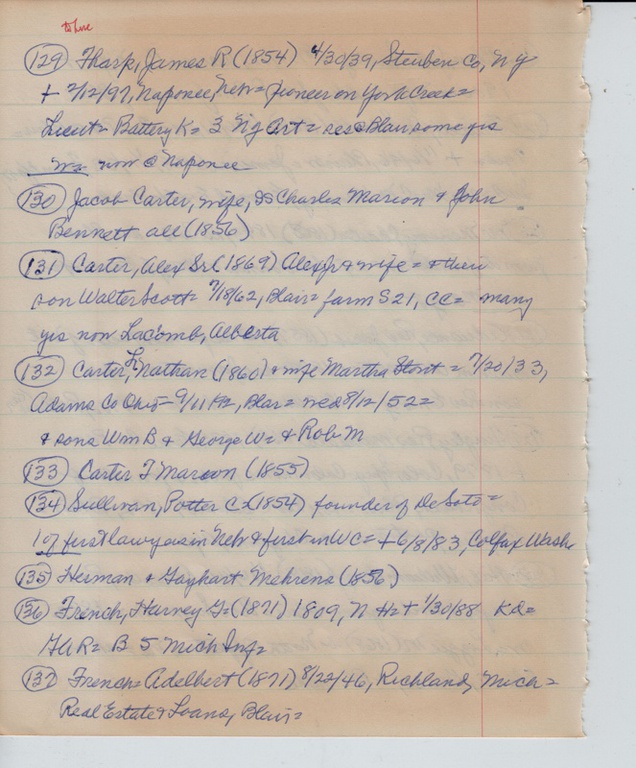 (129) Tharp, James R (1854) 4/30/39, Steuben Co, N Y
+ 2/12/97, Naponee, Neb = Pioneer on York Creek =
Lieut = Battery K = 3 Art = res @ Blair some yrs
now @ Naponee
(130) Jacob Carter, wife, Charles Marion & John
Bennett all (1856)
(131) Carter, Alex Sr (1869) Alex Jr & wife = & their
son Walter Scott = 9/18/62, Blair = farm S21, CC = many
yrs now Lacomb, Alberta
(132) Carter, Nathan (1860) & wife Martha Stout = 7/20/33,
Adams Co Ohio = 9/11 Blair = wed 8/12/52 =
& sons Wm B & George W = & Rob M
(133) Carter J Marion (1855)
(134) Sullivan, Potter C (1854) founder of DeSoto =
1 of first lawyers in Neb & first in WC = + 6/8/83, Colfax Washn
(135) Herman & Gayhart Mehrens (1856)
(136) French, Harvey G = (1871) 1809, N H = + 1/30/88 Kd =
GAR = B 5 Mich Inf =
(137) French = Adelbert (1871) 8/22/46, Richland, Mich =
Real Estate & Loans, Blair =